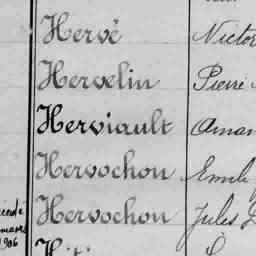 Hervé Victor
Hervelin Pierre
Herviault Aman
Hervochon Emile
Hervochon Jules
1906